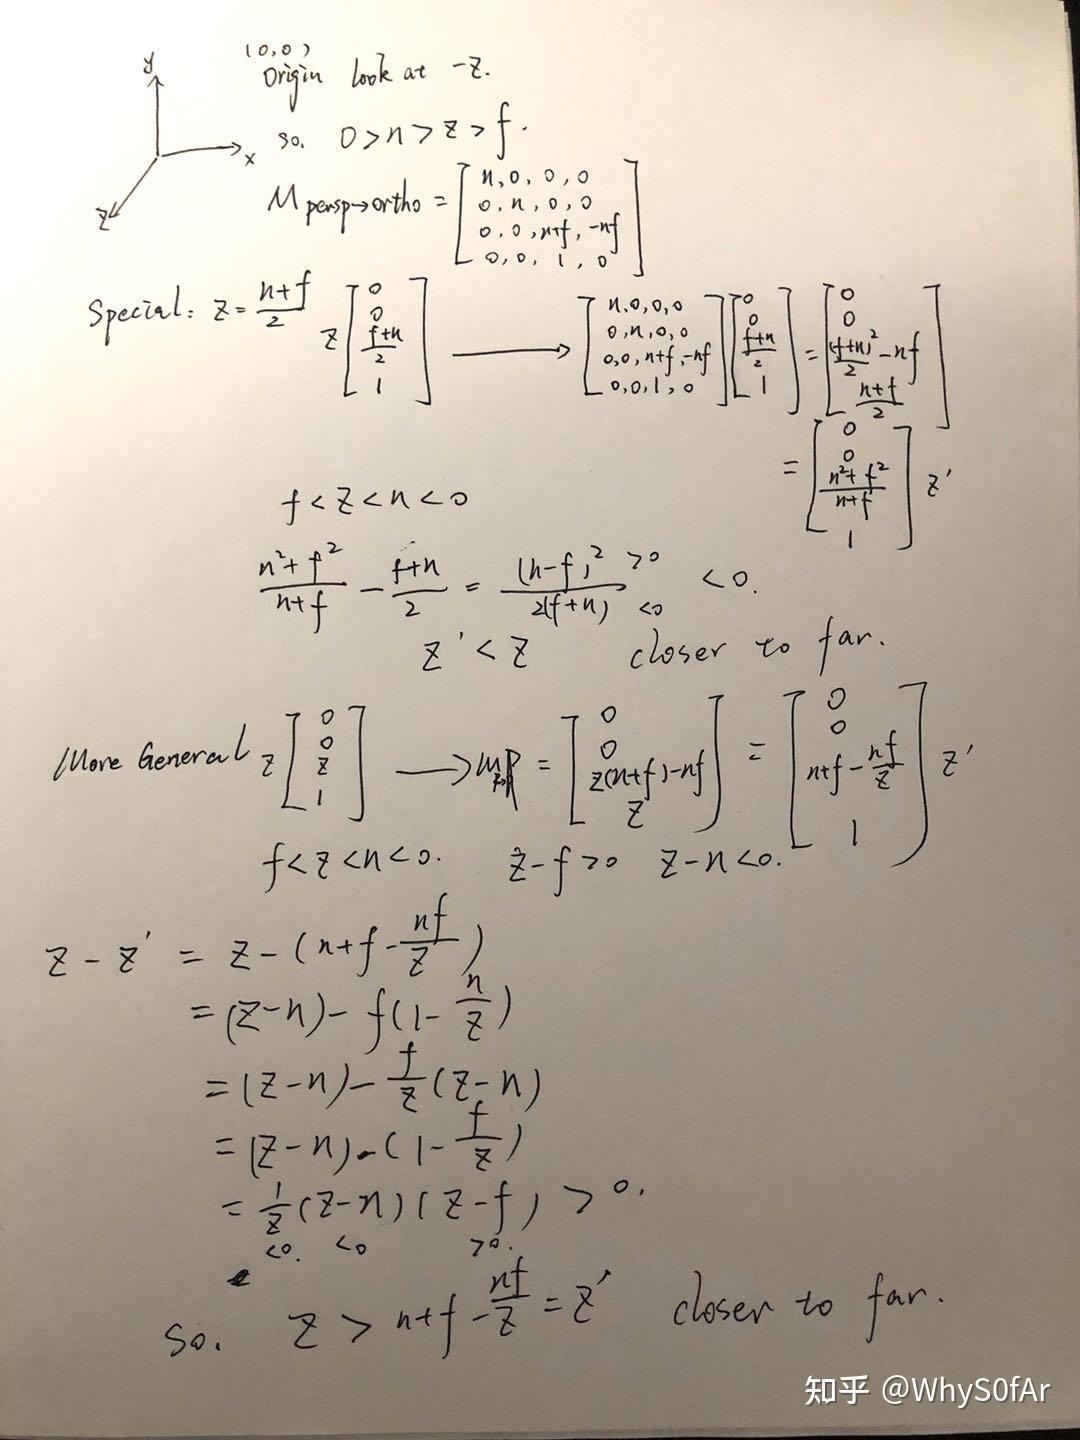 (0,0)
y
Origin look at -z.
x
so. 0 > n > z > f.
z
M persp→ortho = [ n, 0, 0, 0
0, n, 0, 0
0, 0, n+f, -nf
0, 0, 1, 0 ]
Special: z = (n+f)/2 z [ 0 0 (f+n)/2 1 ] → [ n,0,0,0 0,n,0,0 0,0,n+f,-nf 0,0,1,0 ] [ 0 0 (f+n)/2 1 ] = [ 0 0 (f+n)²/2 - nf (n+f)/2 ]
= [ 0 0 (n²+f²)/(n+f) 1 ] z'
f < z < n < 0
(n²+f²)/(n+f) - (f+n)/2 = (n-f)²/2(f+n) >0 <0 < 0.
z' < z closer to far.
More General z [ 0 0 z 1 ] → = [ 0 0 z(n+f)-nf z ] = [ 0 0 n+f - nf/z 1 ] z'
f < z < n < 0. z - f > 0 z - n < 0.
z - z' = z - (n+f - nf/z)
= (z-n) - f(1 - n/z)
= (z-n) - f/z (z-n)
= (z-n) · (1 - f/z)
= 1/z (z-n)(z-f) > 0.
<0. <0 >0.
So. z > n+f - nf/z = z' closer to far.
知乎 @WhyS0fAr